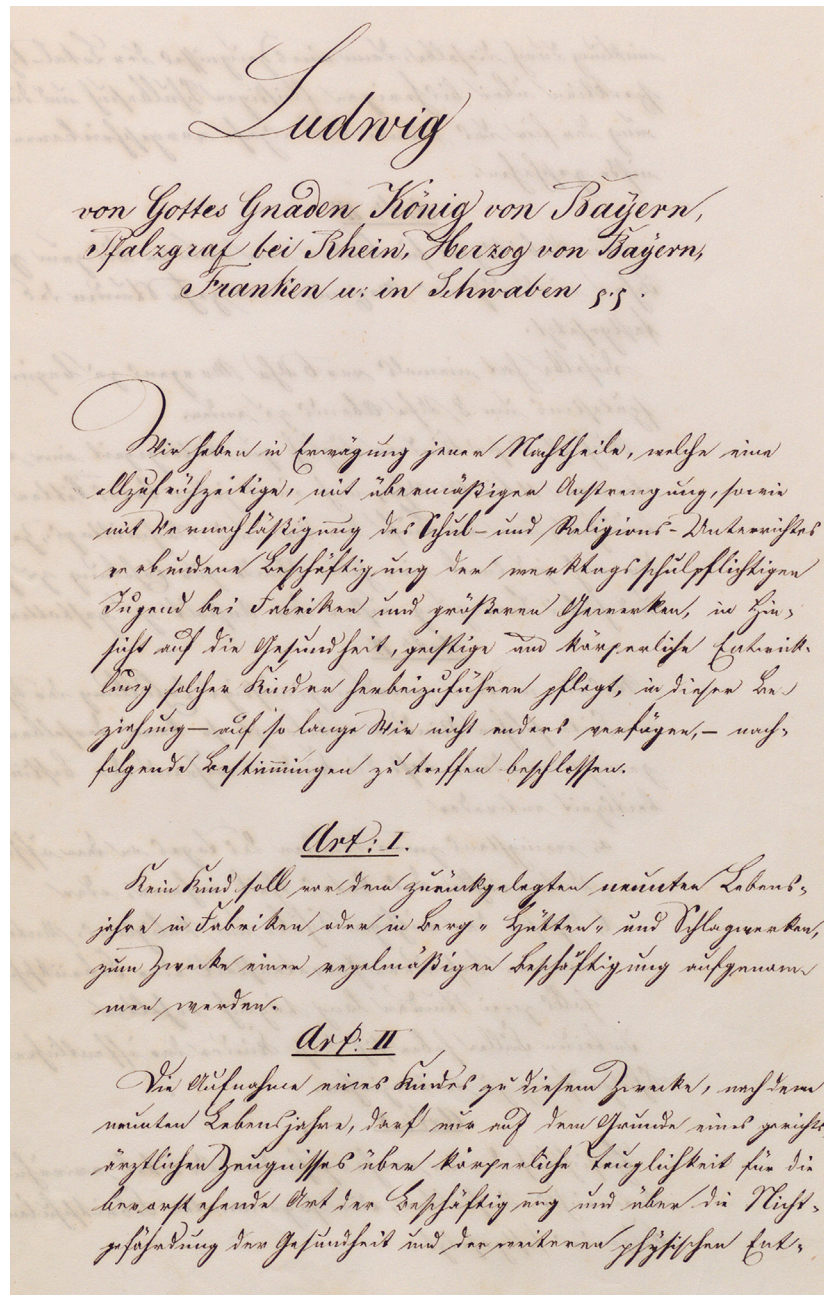 Ludwig
von Gottes Gnaden König von Bayern,
Pfalzgraf bei Rhein, Herzog von Bayern,
Franken u: in Schwaben
Wir haben in Erwägung jener Nachtheile, welche eine
allzufrühzeitige, mit übermäßiger Anstrengung, sowie
mit Vernachläßigung des Schul- und Religions-Unterrichtes
verbundene Beschäftigung der werktagsschulpflichtigen
Jugend bei Fabriken und größeren Gewerken, in Hin-
sicht auf die Gesundheit, geistige und körperliche Entwick-
lung solcher Kinder herbeizuführen pflegt, in dieser Be-
ziehung – auf so lange Wir nicht anders verfügen, – nach-
folgende Bestimmungen zu treffen beschlossen.
Art: I.
Kein Kind soll vor dem zurückgelegten neunten Lebens-
jahre in Fabriken oder in Berg- Hütten- und Schlagwerken,
zum Zwecke einer regelmäßigen Beschäftigung aufgenom-
men werden.
Art: II
Die Aufnahme eines Kindes zu diesem Zwecke, nach dem
neunten Lebensjahre, darf nur auf dem Grunde eines gerichts
ärztlichen Zeugnisses über körperliche Tauglichkeit für die
bevorstehende Art der Beschäftigung und über die Nicht-
gefährdung der Gesundheit und der weiteren physischen Ent-